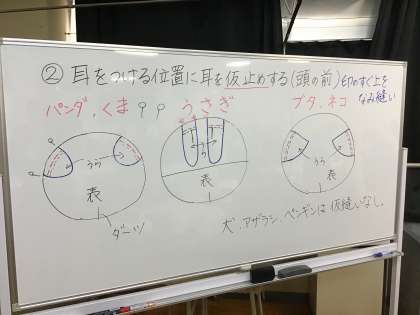 ②耳をつける位置に耳を仮止めする(頭の前)印のすぐ上を
なみ縫い
パンダ、くま
うさぎ
ブタ、ネコ
うら
表
うら
表
うら
表
ダーツ
犬、アザラシ、ペンギンは仮縫いなし。